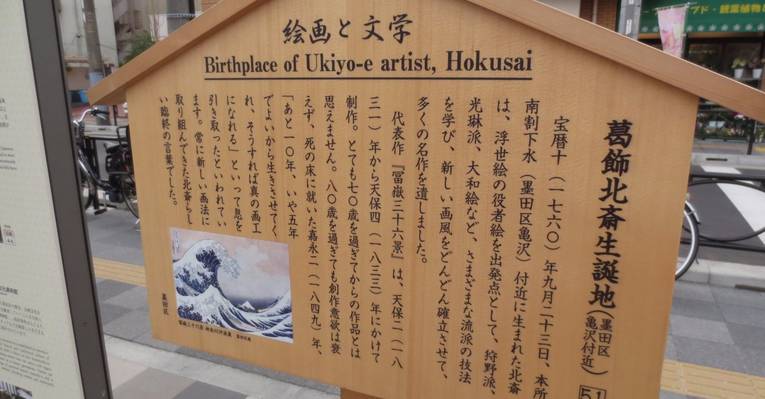 絵画と文学
Birthplace of Ukiyo-e artist, Hokusai
葛飾北斎生誕地（墨田区亀沢付近）
51
宝暦十（一七六〇）年九月二十三日、本所
南割下水（墨田区亀沢）付近に生まれた北斎
は、浮世絵の役者絵を出発点として、狩野派、
光琳派、大和絵など、さまざまな流派の技法
を学び、新しい画風をどんどん確立させて、
多くの名作を遺しました。
代表作『冨嶽三十六景』は、天保二（一八
三一）年から天保四（一八三三）年にかけて
制作。とても七〇歳を過ぎてからの作品とは
思えません。八〇歳を過ぎても創作意欲は衰
えず、死の床に就いた嘉永二（一八四九）年、
「あと一〇年、いや五年
でよいから生きさせてく
れ、そうすれば真の画工
になれる」といって息を
引き取ったといわれてい
ます。常に新しい画法に
取り組んできた北斎らし
い臨終の言葉でした。
墨田区